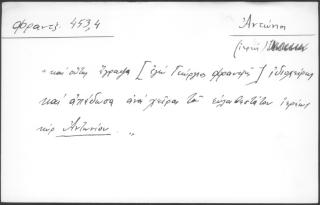 Φραντζ. 453,4
Ἀντώνιος
(ἱερεύς)
" καὶ οὕτως ἔγραψα [ἐγὼ Γεώργιος Φραντζῆς] ἰδιοχείρως
καὶ ἀπέδωσα ἀνὰ χεῖρας τοῦ εὐλαβεστάτου ἱερέως
κὺρ Ἀντωνίου. "